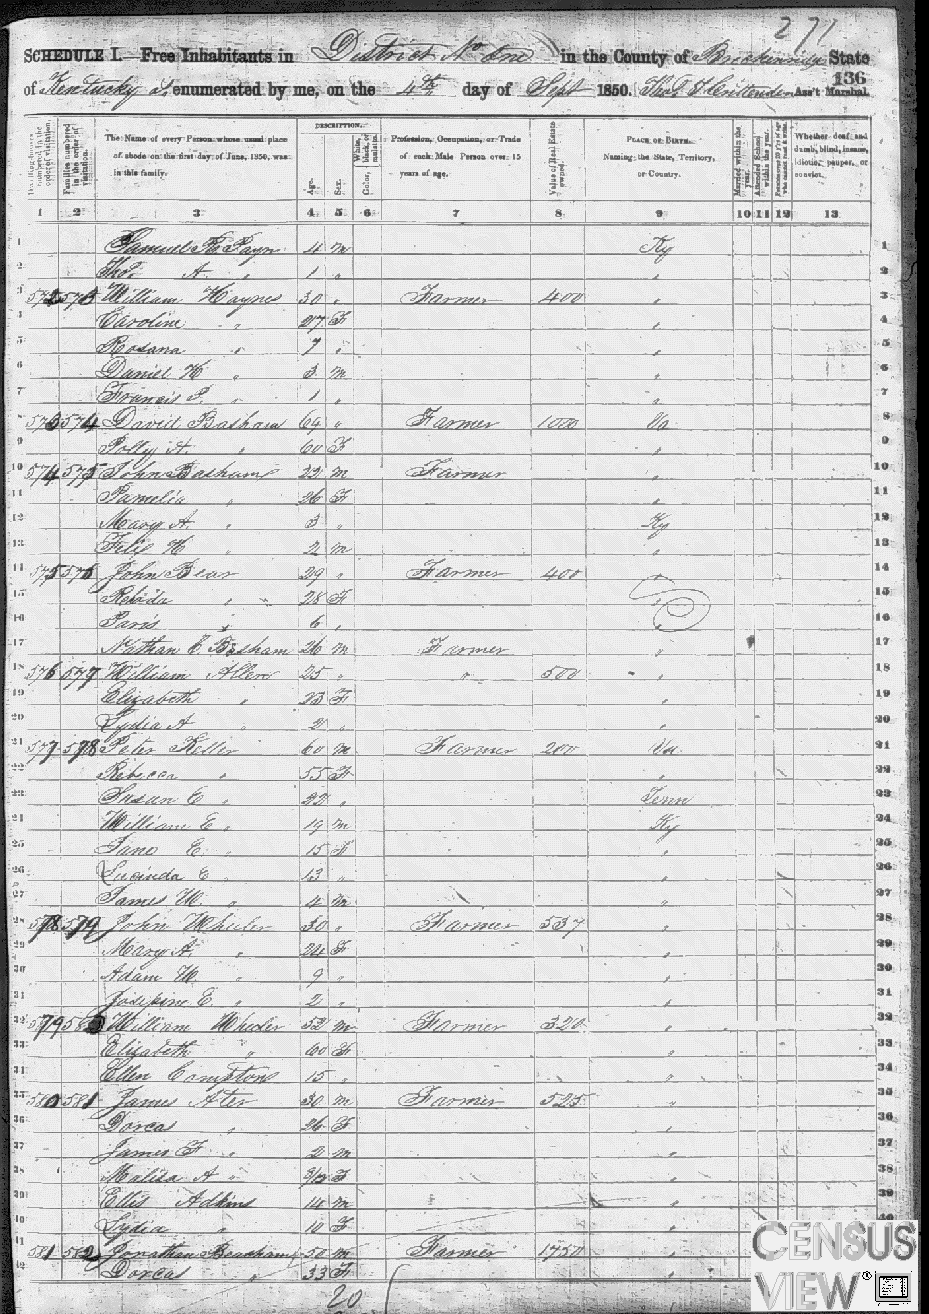 271
SCHEDULE I.—Free Inhabitants in District No One in the County of Breckenridge State
136
of Kentucky enumerated by me, on the 4th day of Sept 1850. Thos J Crittenden Ass't Marshal.
Dwelling-houses numbered in the order of visitation. Families numbered in the order of visitation. The Name of every Person whose usual place of abode on the first day of June, 1850, was in this family. DESCRIPTION. Age. Sex. Color, White, black, or mulatto. Profession, Occupation, or Trade of each Male Person over 15 years of age. Value of Real Estate owned. PLACE OF BIRTH. Naming the State, Territory, or Country. Married within the year. Attended School within the year. Persons over 20 y'rs of age who cannot read & write. Whether deaf and dumb, blind, insane, idiotic, pauper, or convict.
1 2 3 4 5 6 7 8 9 10 11 12 13
1 Samuel Payn 4 m Ky 1
2 Thos A. " 1 " " 2
3 572 573 William Haynes 30 " Farmer 400 " 3
4 Caroline " 27 F " 4
5 Rosana " 7 " " 5
6 Daniel H " 3 m " 6
7 Francis P. " 1 " " 7
8 573 574 David Basham 64 " Farmer 1000 Va 8
9 Polly A. " 60 F " 9
10 574 575 John Basham 22 m Farmer " 10
11 Pamelia " 26 F " 11
12 Mary A. " 3 " Ky 12
13 H " 2 m " 13
14 575 576 John Bear 29 " Farmer 400 " 14
15 " " 28 F " 15
16 Paris " 6 " " 16
17 Nathan C. Basham 26 m Farmer " 17
18 576 577 William Allen 25 " " 500 " 18
19 Elizabeth " 23 F " 19
20 Lydia A " 2 " " 20
21 577 578 Peter Keller 60 m Farmer 200 Va 21
22 Rebecca " 55 F " 22
23 Susan E " 22 " Tenn 23
24 William E " 19 m Ky 24
25 Jane E " 15 F " 25
26 Lucinda E " 13 " " 26
27 James W. " 4 m " 27
28 578 579 John Wheeler 30 " Farmer 537 " 28
29 Mary A. " 24 F " 29
30 Adam W. " 9 " " 30
31 Josephine E. " 2 " " 31
32 579 580 William Wheeler 52 m Farmer 320 " 32
33 Elizabeth " 60 F " 33
34 Ellen Compton 15 " " 34
35 580 581 James Ater 30 m Farmer 525 " 35
36 Dorcas " 26 F " 36
37 James F " 2 m " 37
38 Malisa A " F " 38
39 Ellis Adkins 14 m " 39
40 Lydia " 10 F " 40
41 581 582 Jonathan Beacham 50 m Farmer 1750 "
42 Dorcas " 33 F "
20
CENSUS
VIEW®